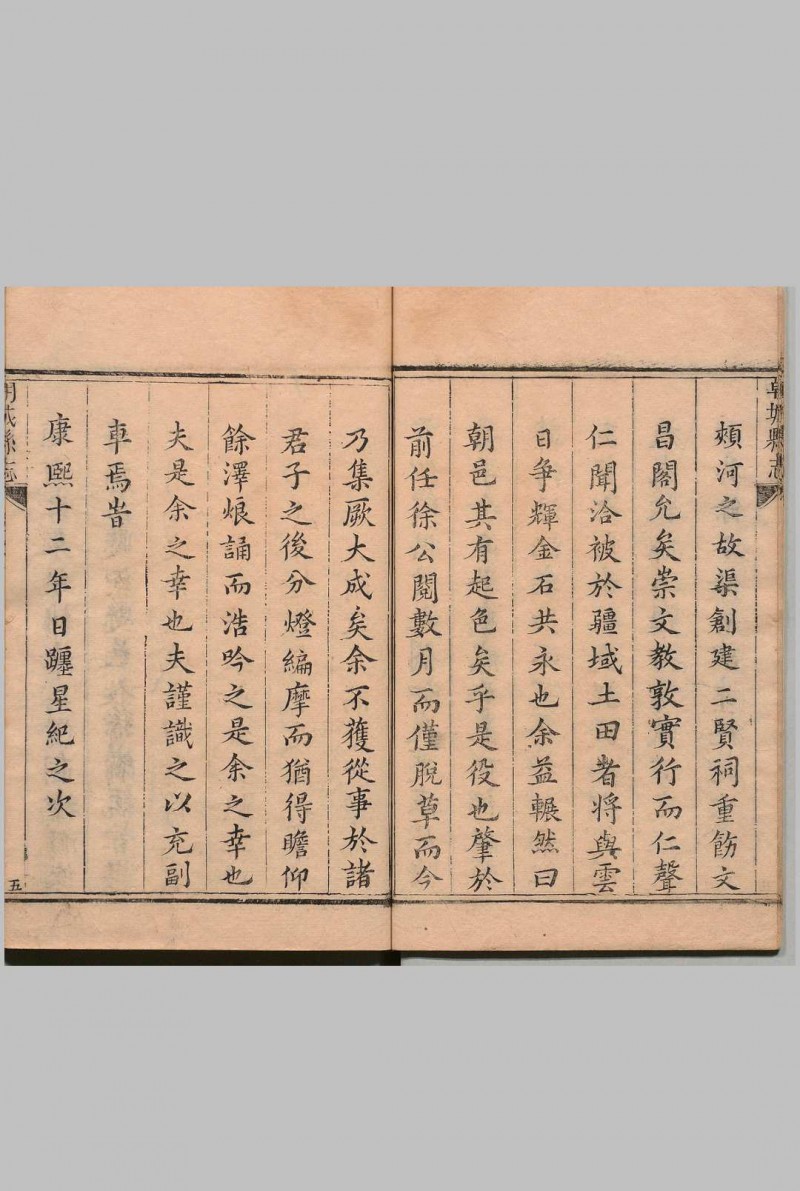 頰河之故渠創建二賢祠重飭文
昌閣允矣崇文教敦實行而仁聲
仁聞洽被於疆域土田者將與雲
日爭輝金石共永也余益輾然曰
朝邑其有起色矣乎是役也肇於
前任徐公閱數月而僅脫草而今
乃集厥大成矣余不獲從事於諸
君子之後分燈編摩而猶得瞻仰
餘澤烺誦而浩吟之是余之幸也
夫是余之幸也夫謹識之以充副
車焉旹
康熙十二年日躔星紀之次
城縣志
五